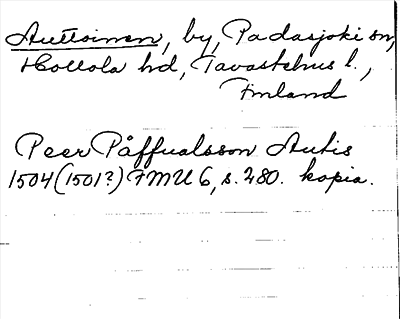 Auttoinen, by, Padasjoki sn,
Hollola hd, Tavastehus l.,
Finland
Peer Påffualsson Autis
1504 (1501?) FMU 6, s. 280. kopia.